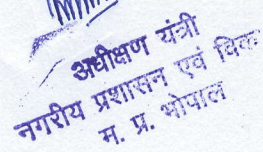 अधीक्षण यंत्री
नगरीय प्रशासन एवं विक
म. प्र. भोपाल